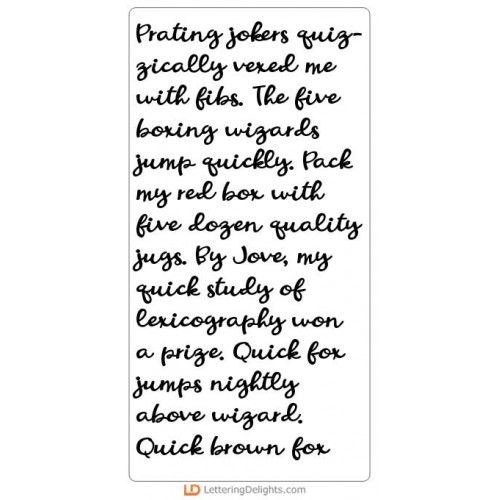 Prating jokers quiz-
zically vexed me
with fibs. The five
boxing wizards
jump quickly. Pack
my red box with
five dozen quality
jugs. By Jove, my
quick study of
lexicography won
a prize. Quick fox
jumps nightly
above wizard.
Quick brown fox
LD LetteringDelights.com